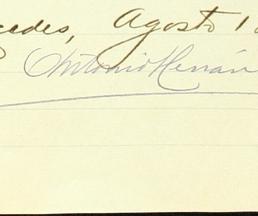 cedes, Agosto 1
Antonio Hernán